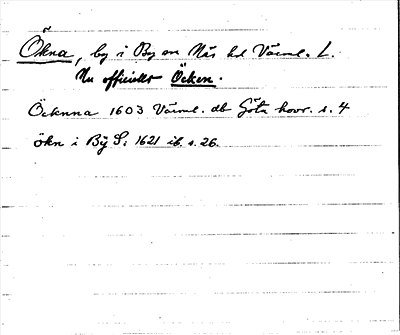 Ökna, by i By sn Näs hd Värml. L.
Nu officiellt Öcken.
Öcknna 1603 Värml. db Göta hovr. s. 4
ökn i Bÿ S. 1621 ib. s. 26.